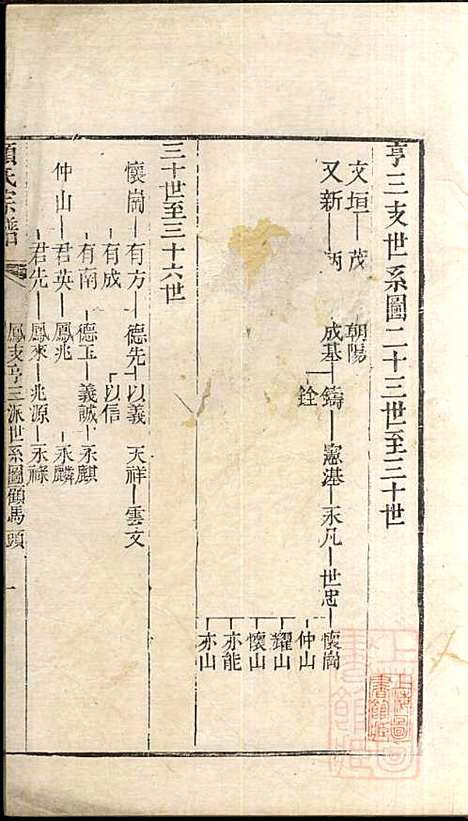 亨三支世系圖二十三世至三十世
文垣 茂 朝陽
又新 炳 成基 鑄 憲湛 永凡 世忠 懷崗
銓 仲山
耀山
懷山
亦能
亦山
三十世至三十六世
懷崗 有方 德先 以義 天祥 雲文
有成 以信
有南 德玉 義誠 永麒
仲山 君英 鳳兆 永麟
君先 鳳來 兆源 永祿
顧氏宗譜 鳳支亨三派世系圖顧馬頭 一